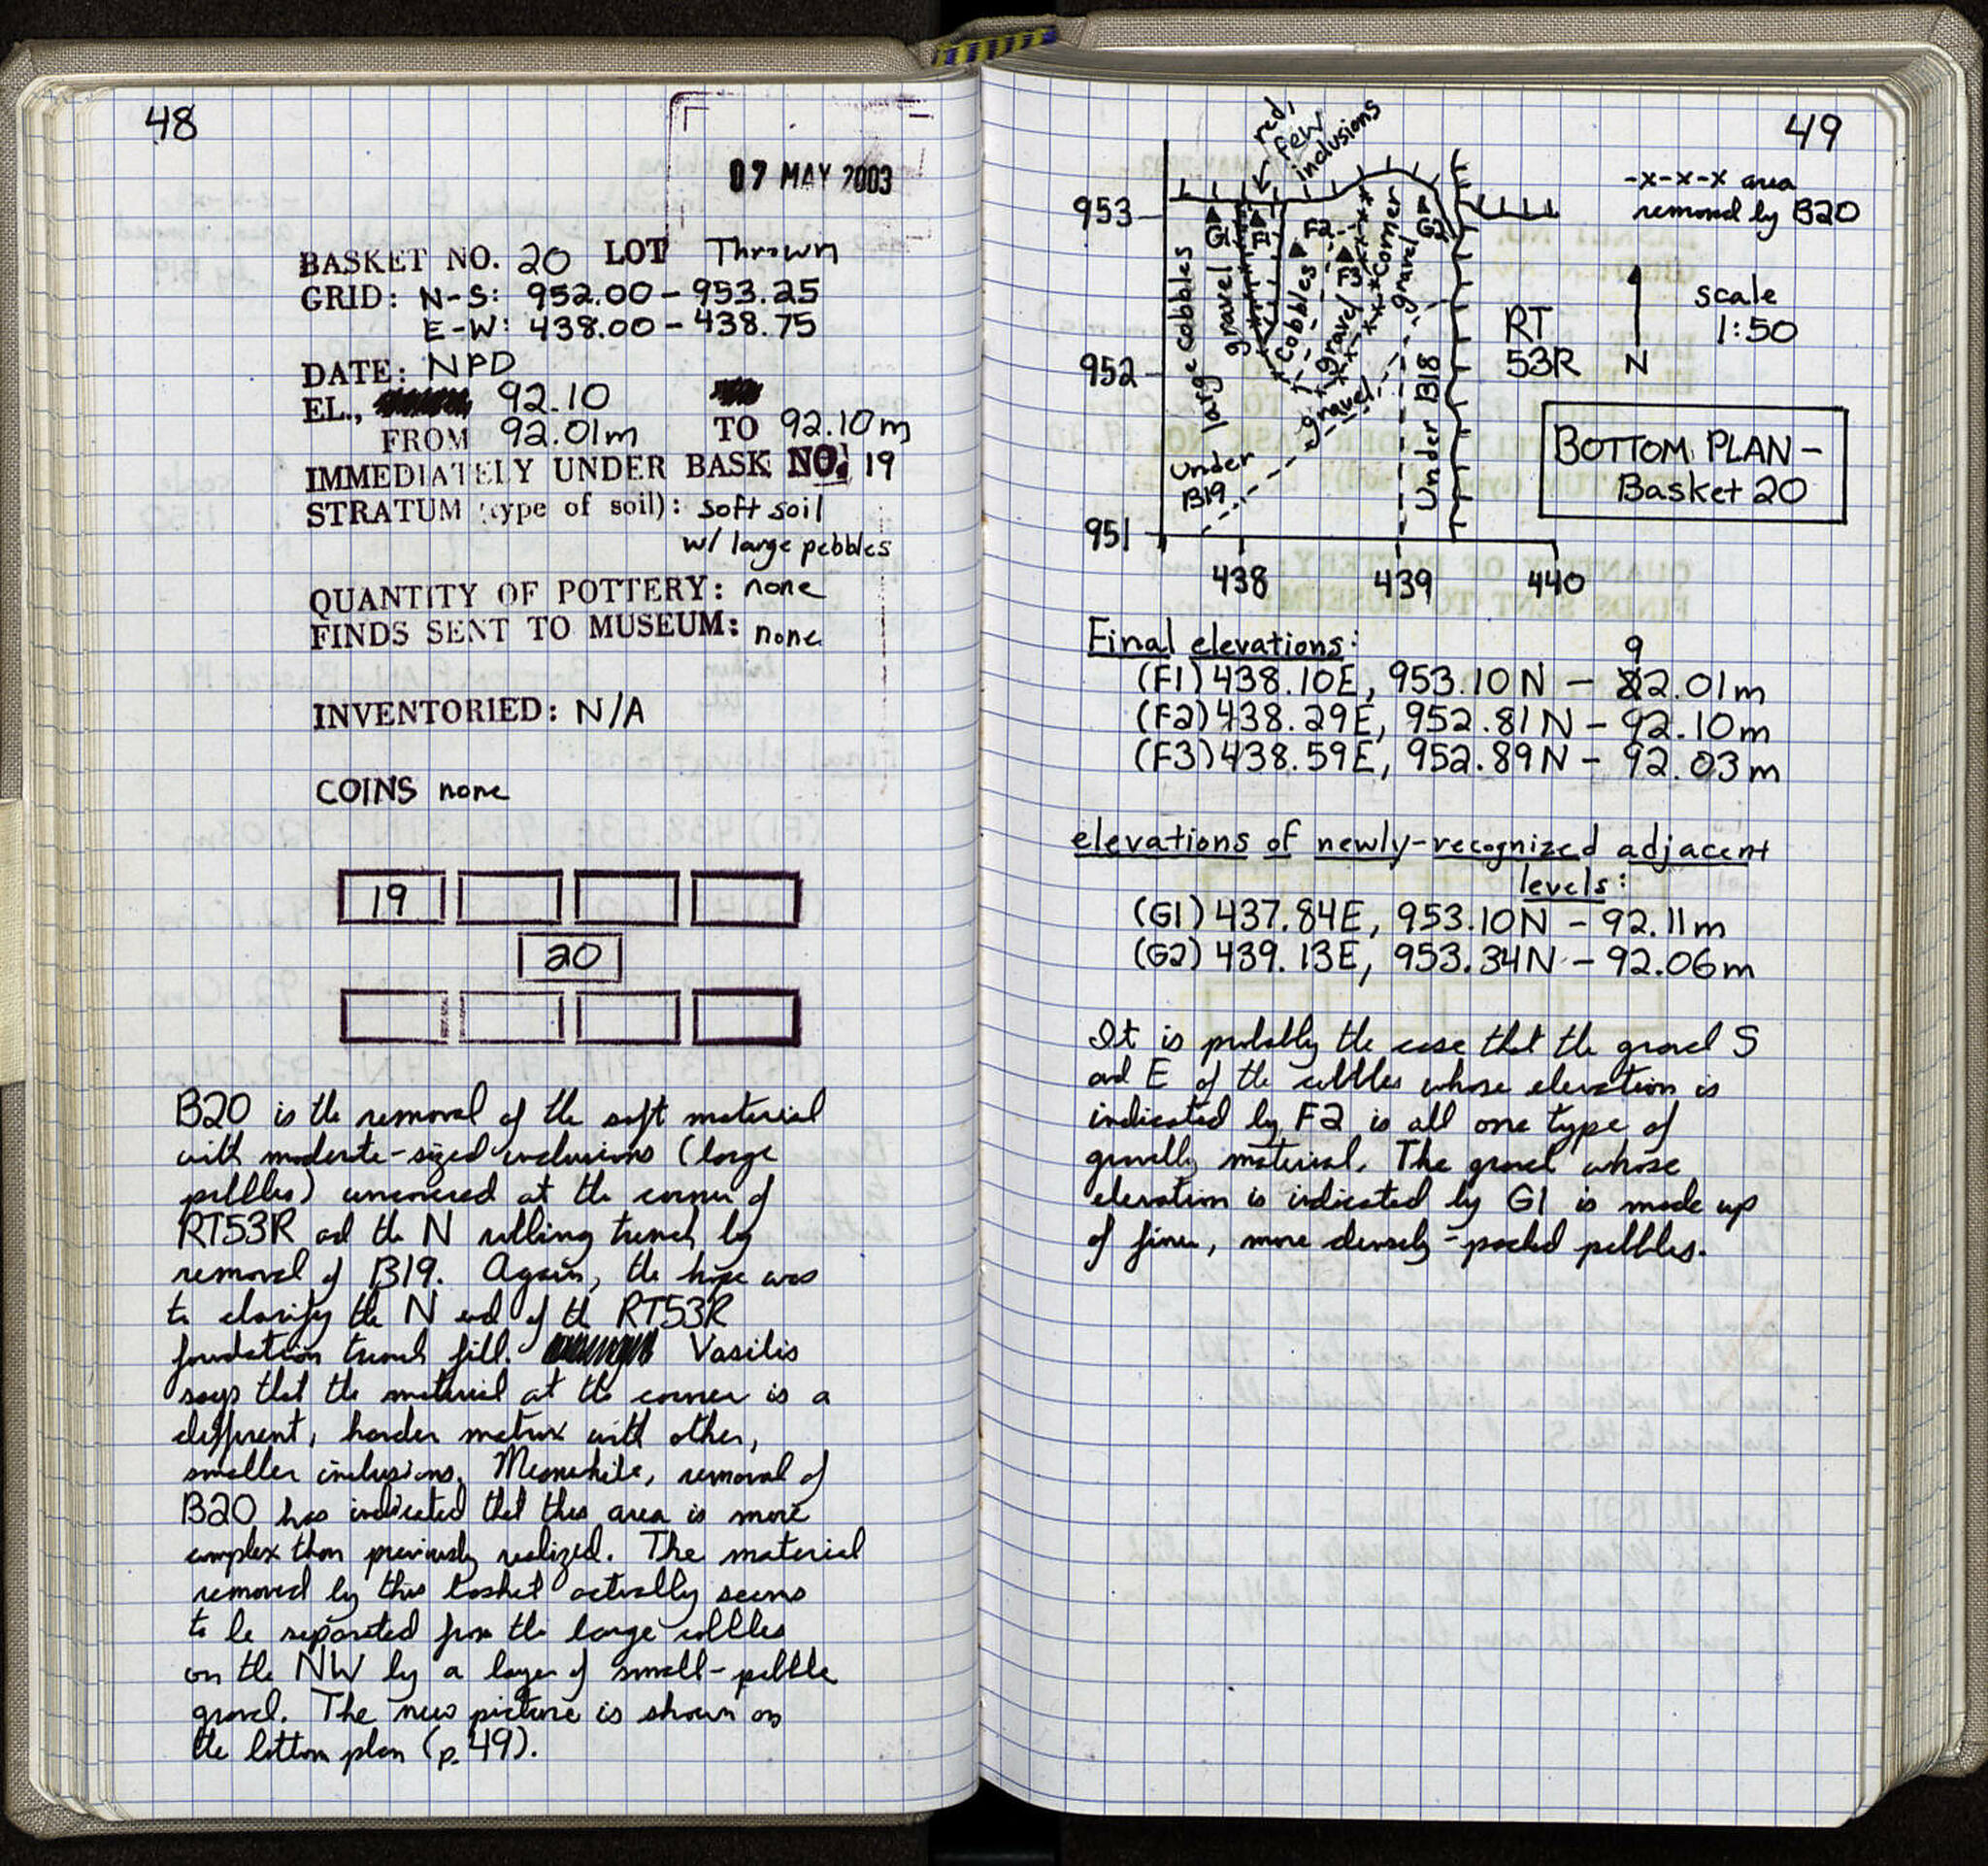 48
07 MAY 2003
BASKET NO. 20 LOT Thrown
GRID: N-S: 952.00-953.25
E-W: 438.00-438.75
DATE: NPD
EL., 92.10
FROM 92.01m TO 92.10m
IMMEDIATELY UNDER BASK NO. 19
STRATUM (type of soil): soft soil
w/ large pebbles
QUANTITY OF POTTERY: none
FINDS SENT TO MUSEUM: none
INVENTORIED: N/A
COINS none
19
20
B20 is the removal of the soft material
with moderate-sized inclusions (large
pebbles) uncovered at the corner of
RT53R and the N robbing trench by
removal of B19. Again, the hope was
to clarify the N end of the RT53R
foundation trench fill. Vasilis
says that the material at the corner is a
different, harder matrix with other,
smaller inclusions. Meanwhile, removal of
B20 has indicated that this area is more
complex than previously realized. The material
removed by this basket actually seems
to be separated from the large cobbles
on the NW by a layer of small-pebble
gravel. The new picture is shown on
the bottom plan (p. 49).
49
red,
few
inclusions
-x-x-x area
removed by B20
953
952
951
438
439
440
large cobbles
gravel
G1
F1
F2
F3
G2
cobbles
gravel
corner
gravel
gravel
under
B19
Under B18
RT
53R
N
scale
1:50
BOTTOM PLAN-
Basket 20
Final elevations:
9
(F1) 438.10E, 953.10N - 82.01m
(F2) 438.29E, 952.81N - 92.10m
(F3) 438.59E, 952.89N - 92.03m
elevations of newly-recognized adjacent
levels:
(G1) 437.84E, 953.10N - 92.11m
(G2) 439.13E, 953.34N - 92.06m
It is probably the case that the gravel S
and E of the cobbles whose elevation is
indicated by F2 is all one type of
gravelly material. The gravel whose
elevation is indicated by G1 is made up
of finer, more densely-packed pebbles.